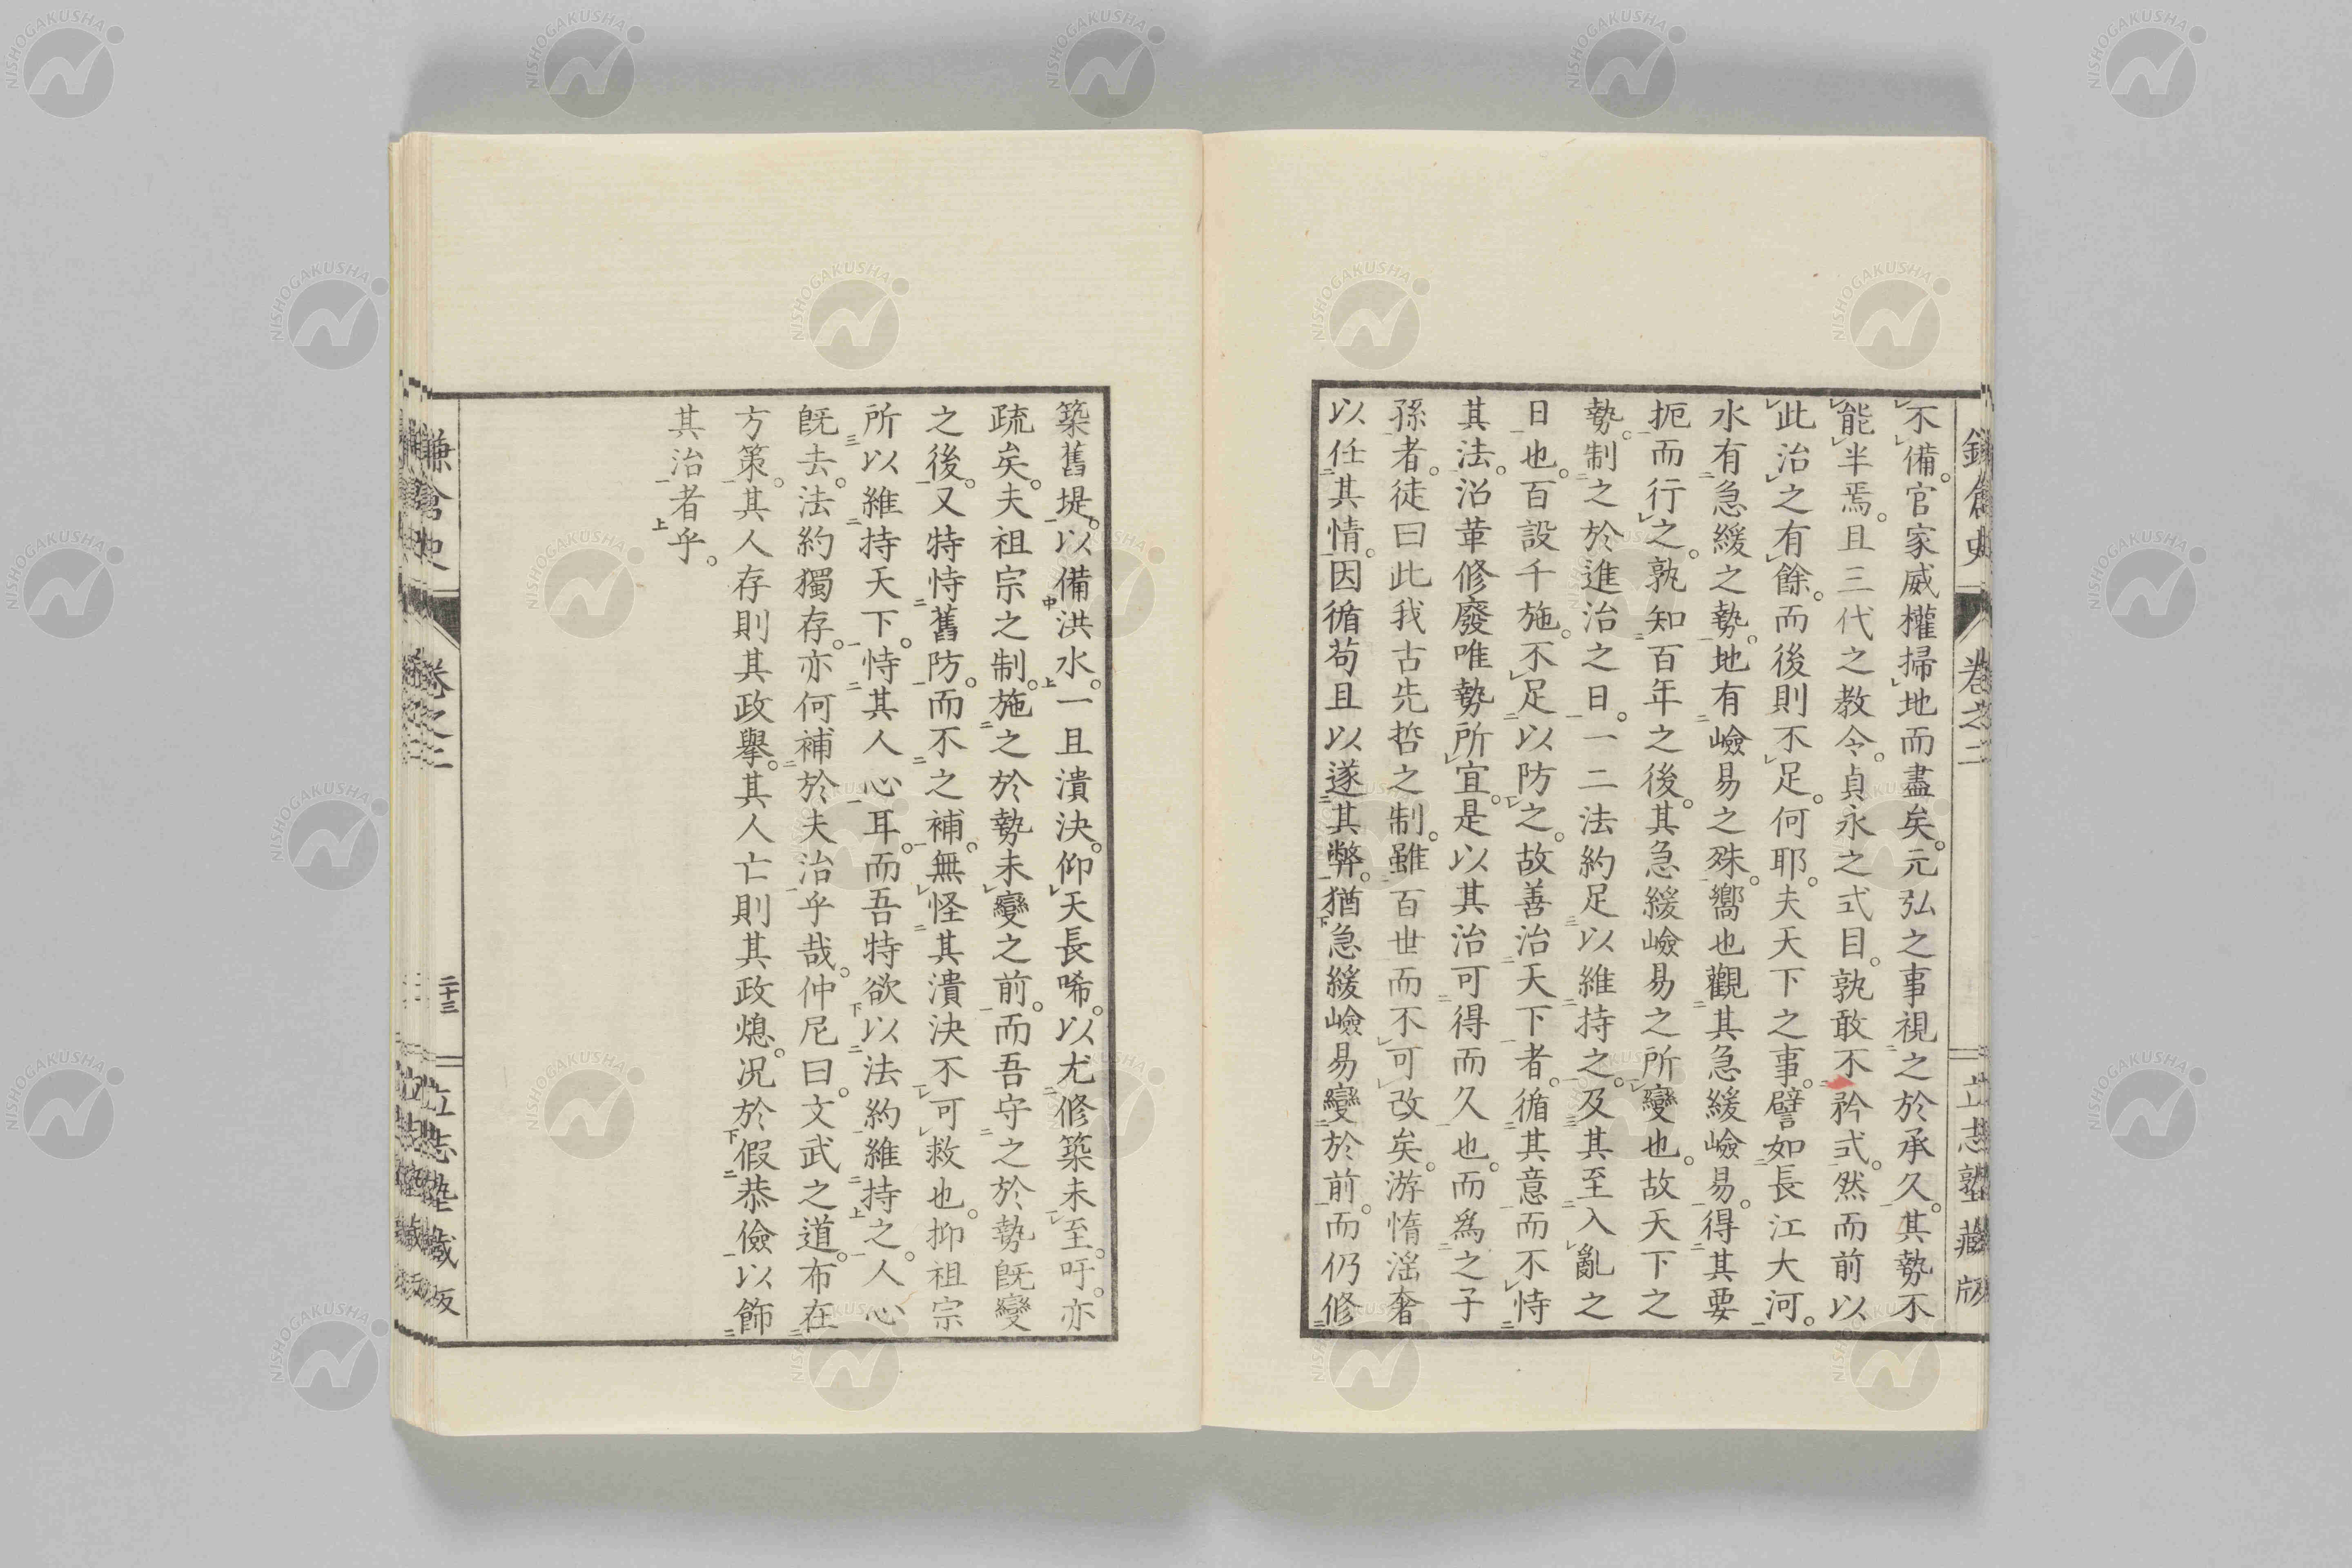 鎌倉史 卷之二 立志塾藏版
不備。官家威權掃地而盡矣。元弘之事視之於承久。其勢不
能半焉。且三代之教令。貞永之式目。孰敢不矜式。然而前以
此治之有餘。而後則不足。何耶。夫天下之事。譬如長江大河。
水有急緩之勢。地有嶮易之殊。嚮也觀其急緩嶮易。得其要
扼而行之。孰知百年之後。其急緩嶮易之所變也。故天下之
勢。制之於進治之日。一二法約足以維持之。及其至入亂之
日也。百設千施。不足以防之。故善治天下者。循其意而不恃
其法。沿革修廢唯勢所宜。是以其治可得而久也。而爲之子
孫者。徒曰此我古先哲之制。雖百世而不可改矣。游惰滛奢
以任其情。因循苟且以遂其弊。猶急緩嶮易變於前。而仍修
築舊堤。以備洪水。一旦潰決。仰天長唏。以尤修築未至。吁。亦
疏矣。夫祖宗之制。施之於勢未變之前。而吾守之於勢旣變
之後。又特恃舊防。而不之補。無怪其潰決不可救也。抑祖宗
所以維持天下。恃其人心耳。而吾特欲以法約維持之。人心
旣去。法約獨存。亦何補於夫治乎哉。仲尼曰。文武之道。布在
方策。其人存則其政擧。其人亡則其政熄。况於假恭儉以飾
其治者乎。
鎌倉史 卷之二 二十三 立志塾藏版